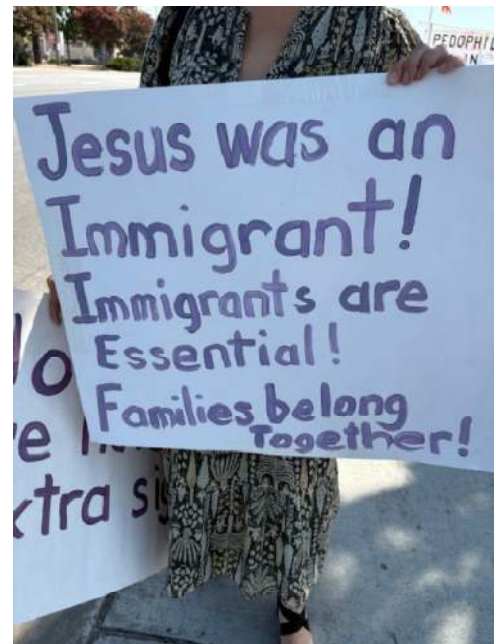 PEDOPHIL
IN
Jesus was an
Immigrant!
Immigrants are
Essential!
Families belong
Together!